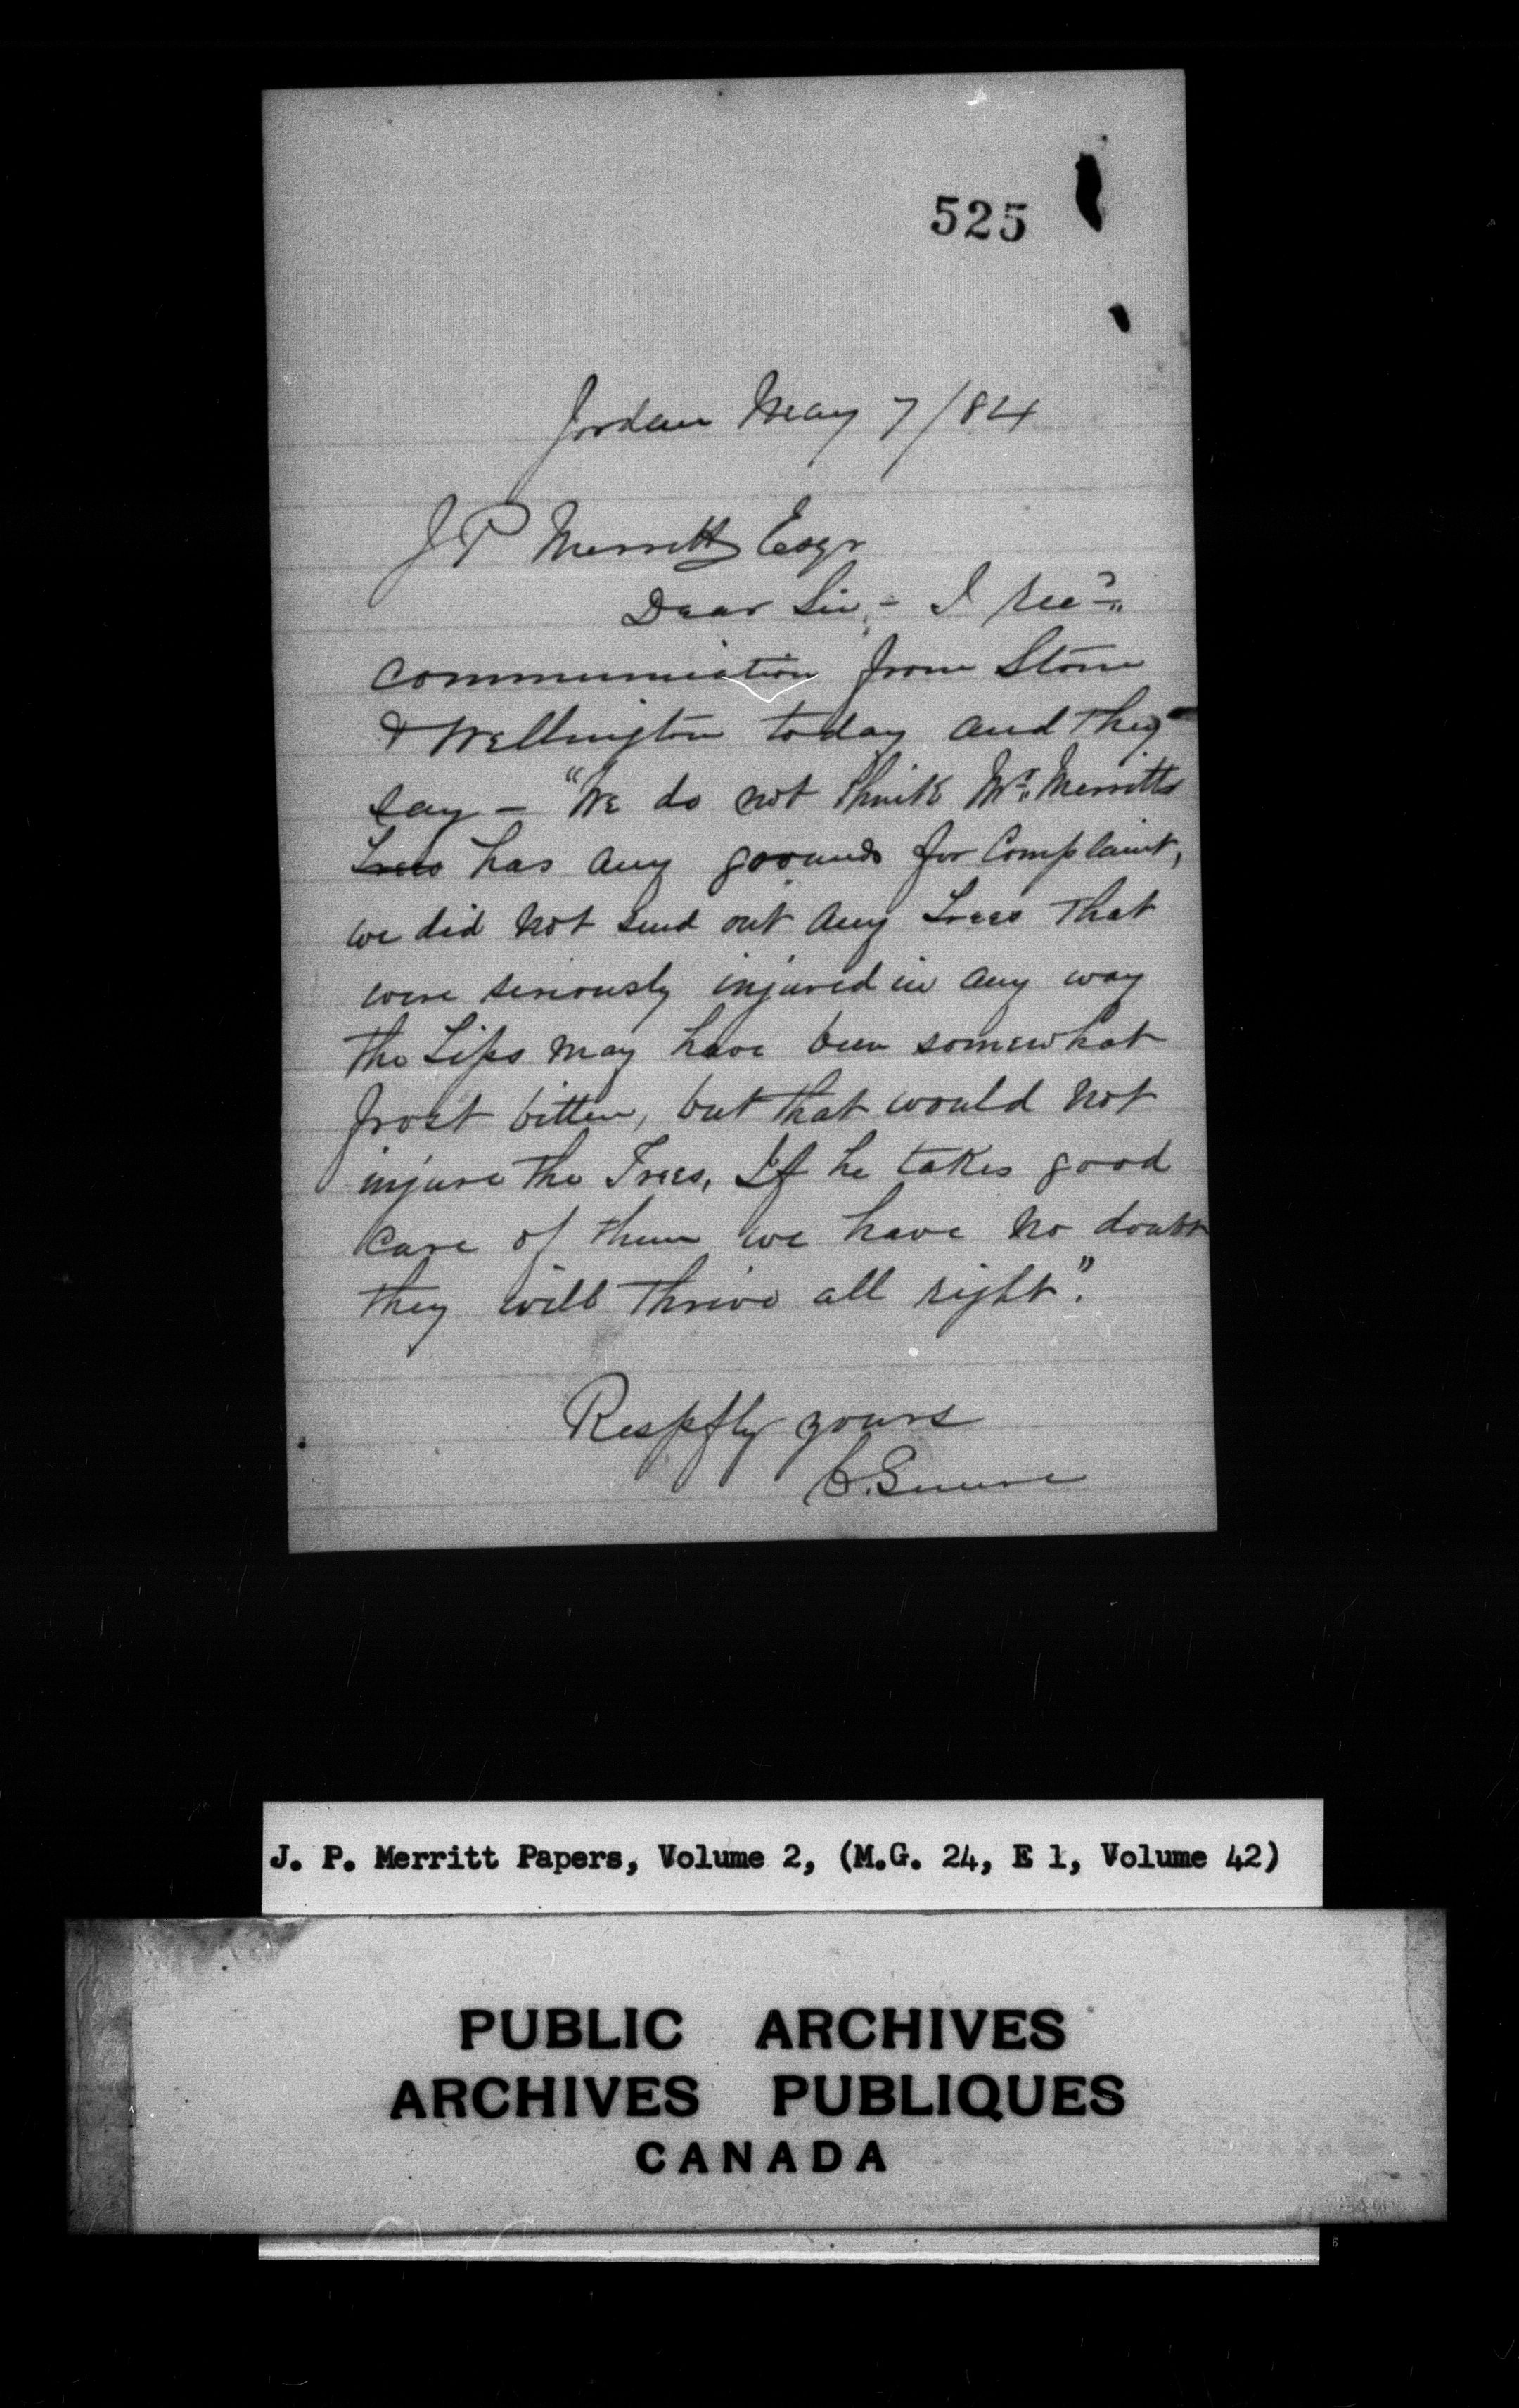 525
Jordan May 7/84
J P Merritt Esqr
Dear Sir, - I recd
communication from Stone
& Wellington today and they
say - "We do not think Mr. Merritts
Trees has any grounds for Complaint,
we did not send out any Trees that
were seriously injured in any way
the Tips may have been somewhat
frost bitten, but that would not
injure the Trees, If he takes good
care of them we have no doubt
they will thrive all right".
Respfly yours
J. P. Merritt Papers, Volume 2, (M.G. 24, E 1, Volume 42)
PUBLIC ARCHIVES
ARCHIVES PUBLIQUES
CANADA